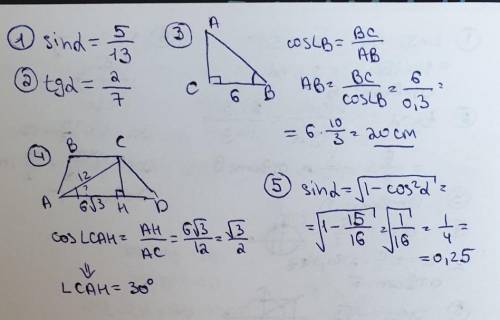 ① sinα = 5/13
② tgα = 2/7
③ A
C 6 B
cos∠B = BC/AB
AB = BC/cos∠B = 6/0,3 =
= 6 · 10/3 = 20 cm
④ B C
12
A 6√3 H D
cos∠CAH = AH/AC = 6√3/12 = √3/2
⇓
∠CAH = 30°
⑤ sinα = √(1 − cos²α) =
= √(1 − 15/16) = √(1/16) = 1/4 =
= 0,25